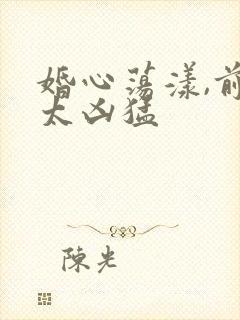 婚心荡漾,前
太凶猛
陈光